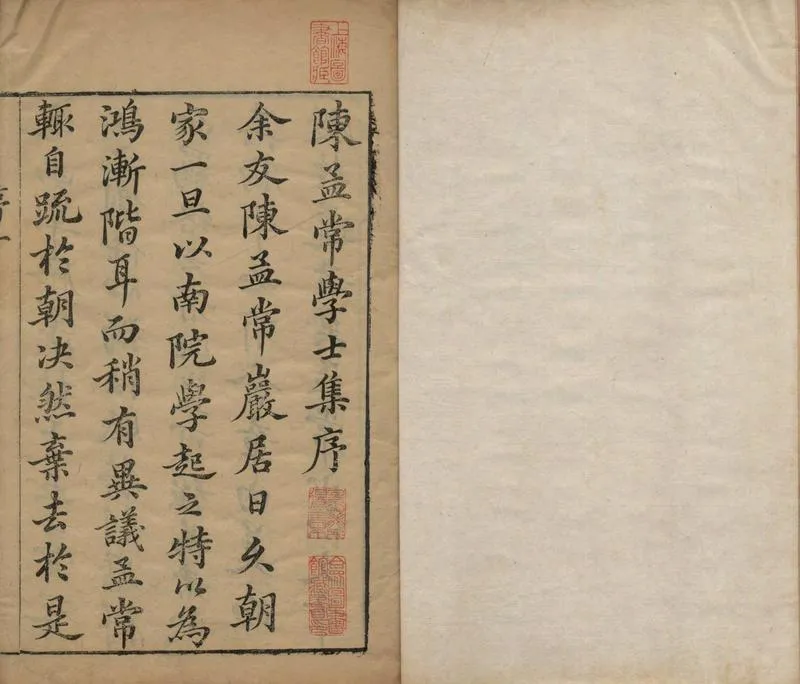 陳孟常學士集序
余友陳孟常巖居日久朝
家一旦以南院學起之特以為
鴻漸階耳而稍有異議孟常
輒自疏於朝决然棄去於是
序一
上海圖書館藏